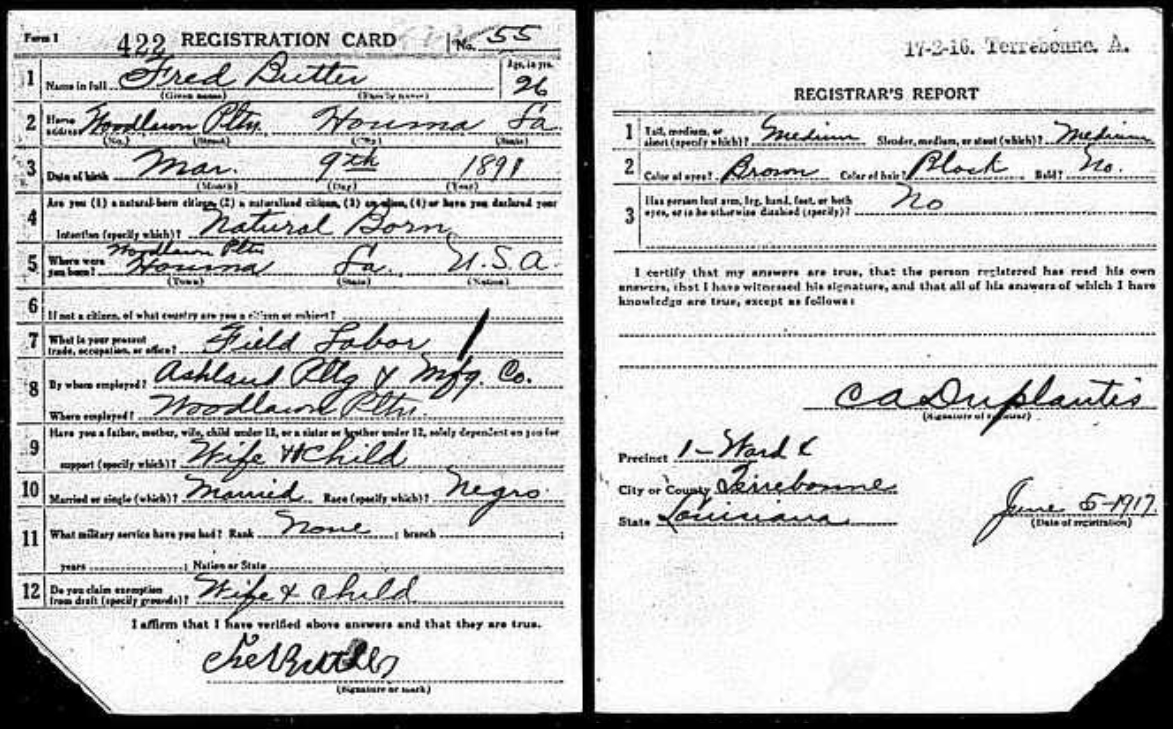 Form 1 422 REGISTRATION CARD No. 55
1 Name in full Fred Butler Age, in yrs. 26
(Given name) (Family name)
2 Home address Woodlawn Pltn. Houma La.
(No.) (Street) (City) (State)
3 Date of birth Mar. 9th 1891
(Month) (Day) (Year)
4 Are you (1) a natural-born citizen, (2) a naturalized citizen, (3) an alien, (4) or have you declared your
intention (specify which)? Natural Born
Woodlawn Pltn
5 Where were you born? Houma La. U.S.A.
(Town) (State) (Nation)
6 If not a citizen, of what country are you a citizen or subject?
7 What is your present trade, occupation, or office? Field Labor
8 By whom employed? Ashland Pltg & Mfg. Co.
Where employed? Woodlawn Pltn.
9 Have you a father, mother, wife, child under 12, or a sister or brother under 12, solely dependent on you for
support (specify which)? Wife & Child
10 Married or single (which)? Married Race (specify which)? Negro
11 What military service have you had? Rank None ; branch ;
years ; Nation or State
12 Do you claim exemption from draft (specify grounds)? Wife & child
I affirm that I have verified above answers and that they are true.
(Signature or mark)
17-2-16. Terrebonne. A.
REGISTRAR'S REPORT
1 Tall, medium, or short (specify which)? Medium Slender, medium, or stout (which)? Medium
2 Color of eyes? Brown Color of hair? Black Bald? No.
3 Has person lost arm, leg, hand, foot, or both eyes, or is he otherwise disabled (specify)? No
I certify that my answers are true, that the person registered has read his own
answers, that I have witnessed his signature, and that all of his answers of which I have
knowledge are true, except as follows:
C A Duplantis
(Signature of registrar)
Precinct 1 - Ward
City or County Terrebonne
State Louisiana June 5-1917
(Date of registration)